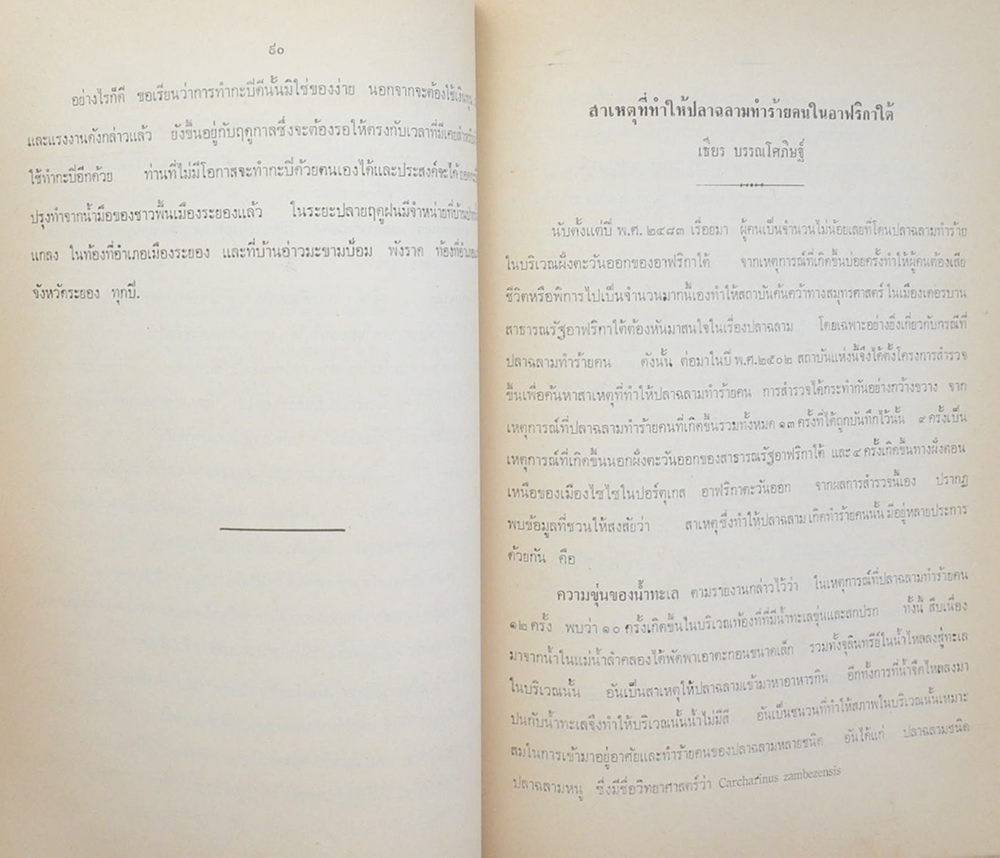 ๕๐
อย่างไรก็ดี ขอเรียนว่าการทำกะปิดีนั้นมิใช่ของง่าย นอกจากจะต้องใช้เงินทุน
และแรงงานดังกล่าวแล้ว ยังขึ้นอยู่กับฤดูกาลซึ่งจะต้องรอให้ตรงกับเวลาที่มีเคย
ใช้ทำกะปิอีกด้วย ท่านที่ไม่มีโอกาสจะทำกะปิด้วยตนเองได้และประสงค์จะได้
ปรุงทำจากน้ำมือของชาวพื้นเมืองระยองแล้ว ในระยะปลายฤดูฝนมีจำหน่ายที่บ้าน
แกลง ในท้องที่อำเภอเมืองระยอง และที่บ้านอ่าวมะขามป้อม พังราด ท้องที่
จังหวัดระยอง ทุกปี.
สาเหตุที่ทำให้ปลาฉลามทำร้ายคนในอาฟริกาใต้
เธียร บรรณโศภิษฐ์
นับตั้งแต่ปี พ.ศ. ๒๔๘๓ เรื่อยมา ผู้คนเป็นจำนวนไม่น้อยเลยที่โดนปลาฉลามทำร้าย
ในบริเวณฝั่งตะวันออกของอาฟริกาใต้ จากเหตุการณ์ที่เกิดขึ้นบ่อยครั้งทำให้ผู้คนต้องเสีย
ชีวิตหรือพิการไปเป็นจำนวนมากนี้เองทำให้สถาบันค้นคว้าทางสมุทรศาสตร์ ในเมืองเดอรบาน
สาธารณรัฐอาฟริกาใต้ต้องหันมาสนใจในเรื่องปลาฉลาม โดยเฉพาะอย่างยิ่งเกี่ยวกับกรณีที่
ปลาฉลามทำร้ายคน ดังนั้น ต่อมาในปี พ.ศ.๒๕๐๒ สถาบันแห่งนี้จึงได้ตั้งโครงการสำรวจ
ขึ้นเพื่อค้นหาสาเหตุที่ทำให้ปลาฉลามทำร้ายคน การสำรวจได้กระทำกันอย่างกว้างขวาง จาก
เหตุการณ์ที่ปลาฉลามทำร้ายคนที่เกิดขึ้นรวมทั้งหมด ๑๓ ครั้งที่ได้ถูกบันทึกไว้นั้น ๙ ครั้งเป็น
เหตุการณ์ที่เกิดขึ้นนอกฝั่งตะวันออกของสาธารณรัฐอาฟริกาใต้ และ ๔ ครั้งเกิดขึ้นทางฝั่งตอน
เหนือของเมืองไซไซในปอร์ตุเกส อาฟริกาตะวันออก จากผลการสำรวจนี้เอง ปรากฏ
พบข้อมูลที่ชวนให้สงสัยว่า สาเหตุซึ่งทำให้ปลาฉลามเกิดทำร้ายคนนั้น มีอยู่หลายประการ
ด้วยกัน คือ
ความขุ่นของน้ำทะเล ตามรายงานกล่าวไว้ว่า ในเหตุการณ์ที่ปลาฉลามทำร้ายคน
๑๒ ครั้ง พบว่า ๑๐ ครั้งเกิดขึ้นในบริเวณท้องที่ที่มีน้ำทะเลขุ่นและสกปรก ทั้งนี้ สืบเนื่อง
มาจากน้ำในแม่น้ำลำคลองได้พัดพาเอาตะกอนขนาดเล็ก รวมทั้งจุลินทรีย์ในน้ำไหลลงสู่ทะเล
ในบริเวณนั้น อันเป็นสาเหตุให้ปลาฉลามเข้ามาหาอาหารกิน อีกทั้งการที่น้ำจืดไหลลงมา
ปนกับน้ำทะเลจึงทำให้บริเวณนั้นน้ำไม่มีสี อันเป็นชนวนที่ทำให้สภาพในบริเวณนั้นเหมาะ
สมในการเข้ามาอยู่อาศัยและทำร้ายคนของปลาฉลามหลายชนิด อันได้แก่ ปลาฉลามชนิด
ปลาฉลามหนู ซึ่งมีชื่อวิทยาศาสตร์ว่า Carcharinus zambezensis